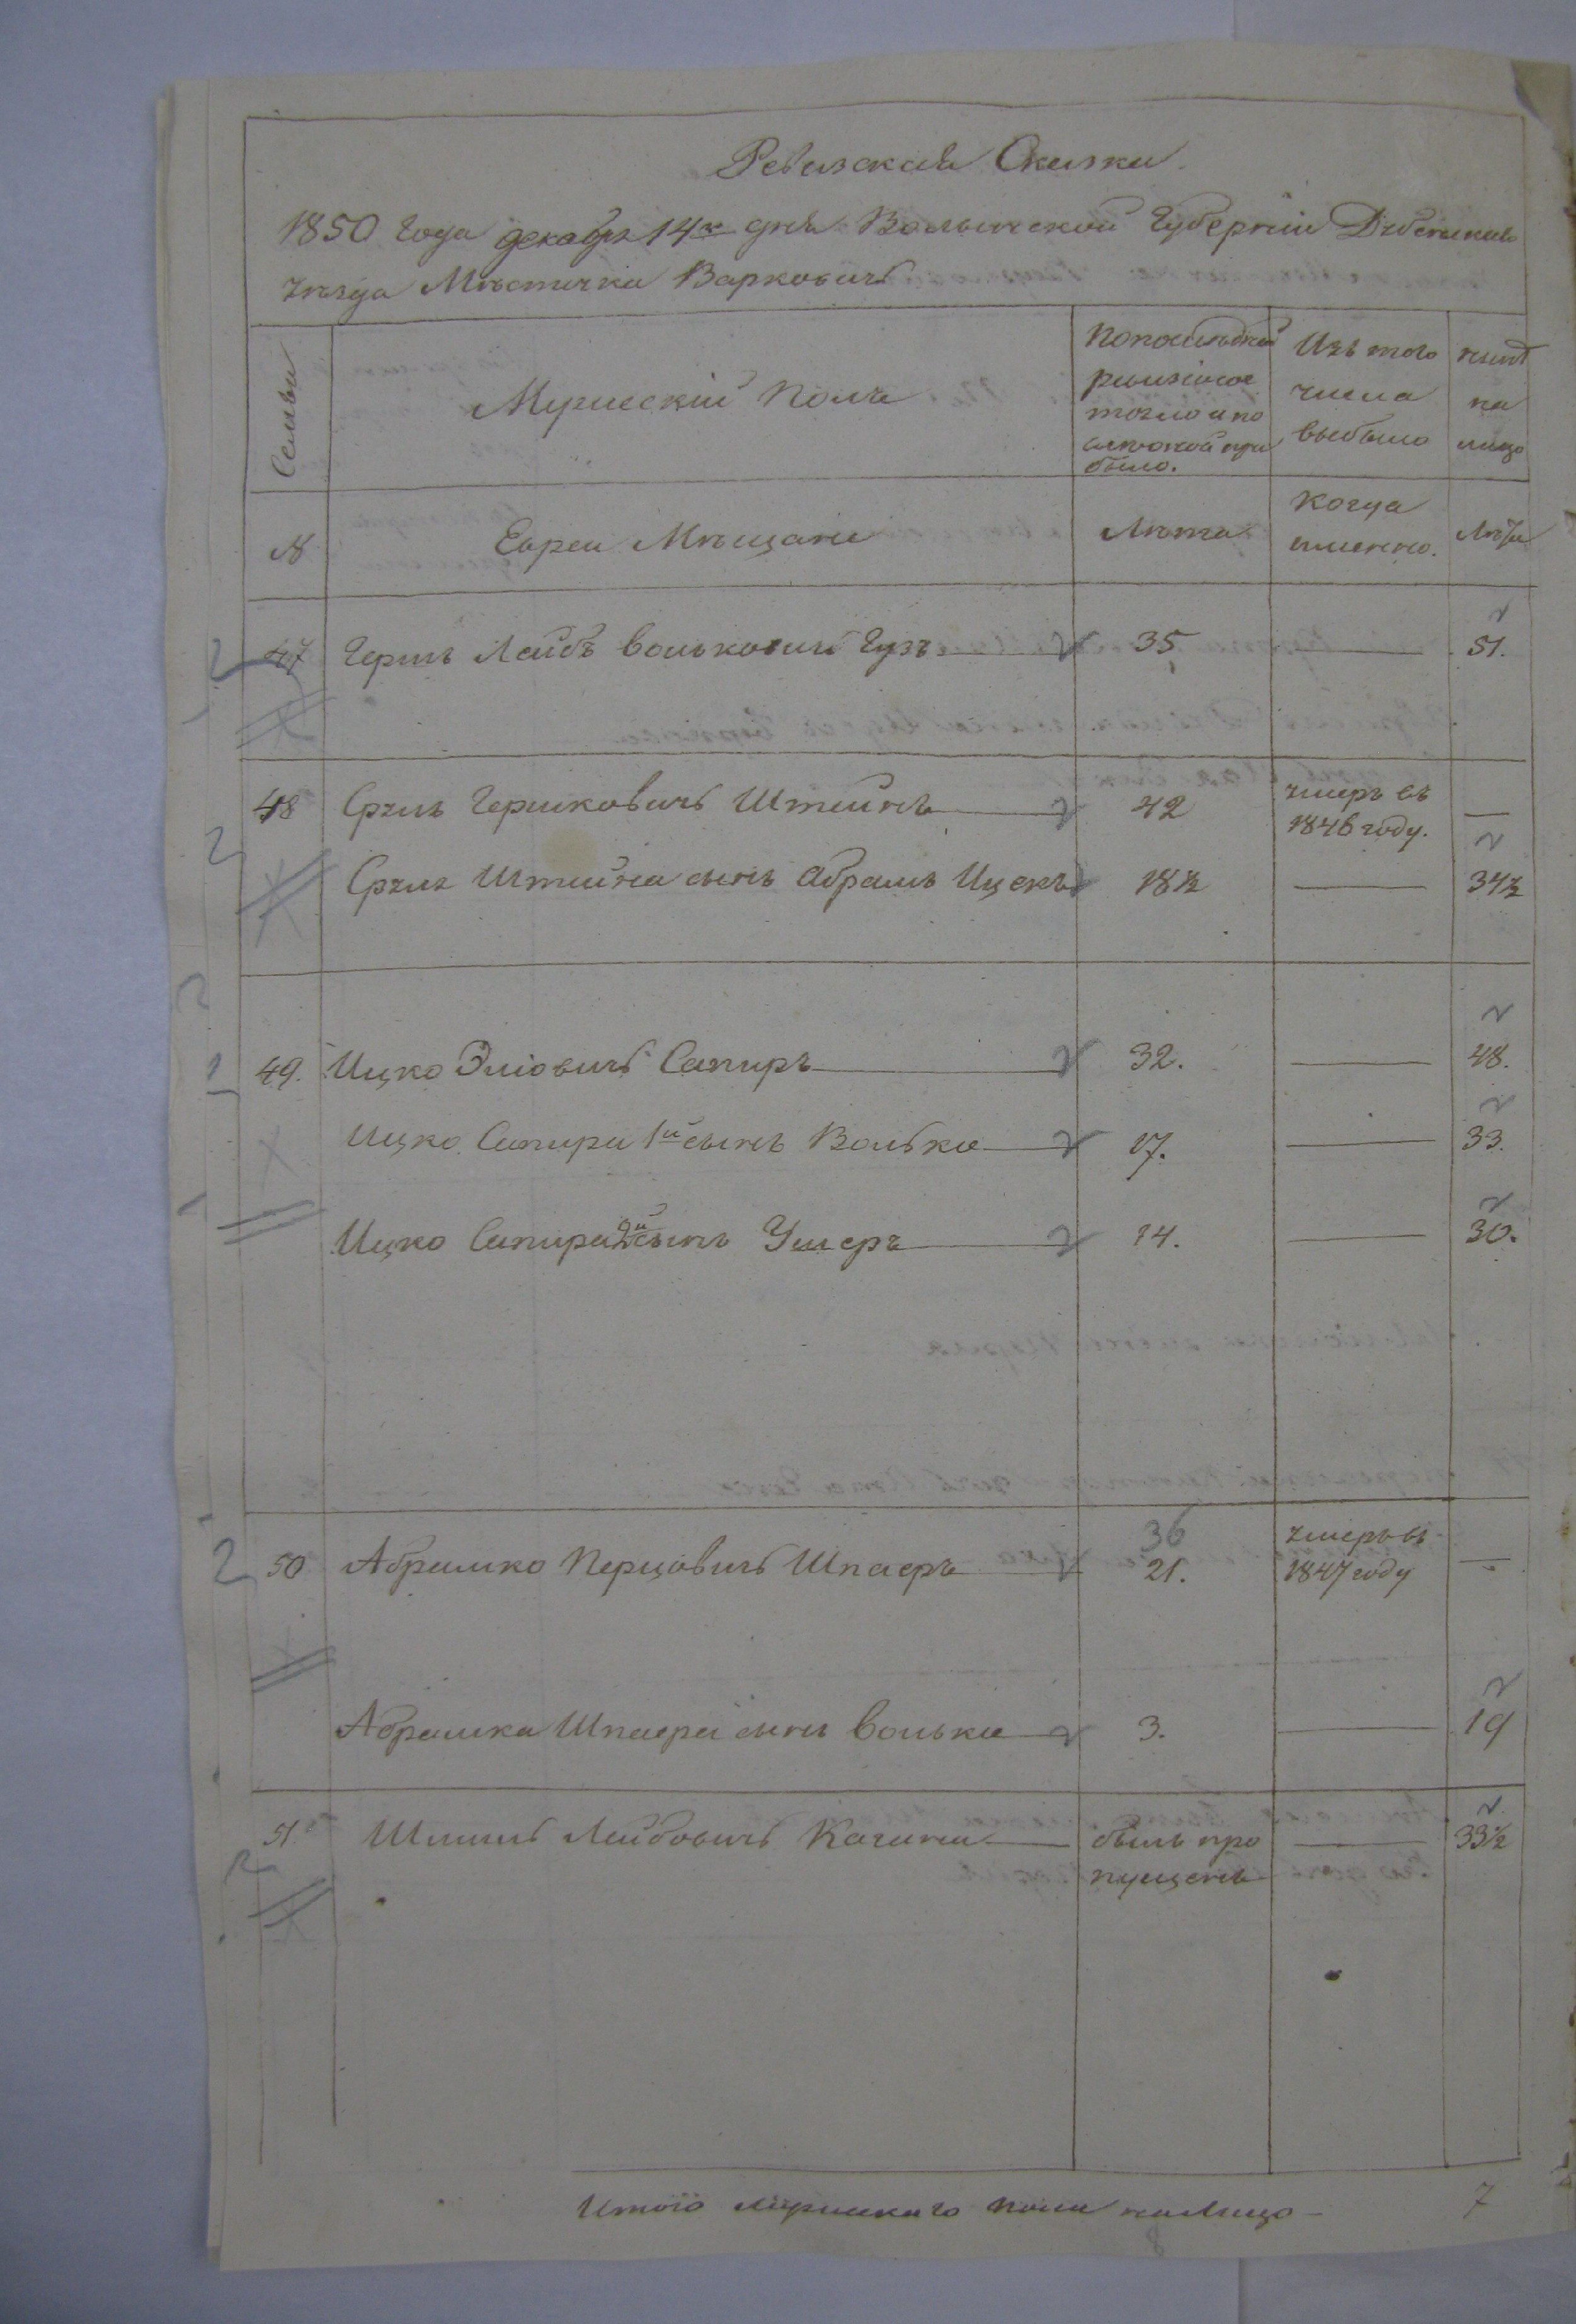 Ревизская Сказка.
1850 года декабря 14го дня Волынской Губернии Дубенскаго
уѣзда Мѣстечка Варковичь
Семьи
Мужескій Полъ
По последней
ревизіи состояло и по
слѣ оной при
было.
Изъ того
числа
выбыло
нынѣ
на
лицо
№
Евреи Мѣщане
Лѣта
Когда
именно.
Лѣта
47 Гершъ Лейбъ Вольковичь Гузъ 35 51.
48 Сруль Гершковичь Штейнъ 42 умеръ въ
1846 году.
Сруля Штейна сынъ Абрамъ Ицекъ 18½ 34½
49. Ицко Эліовичь Сапиръ 32. 48.
Ицко Сапира 1й сынъ Волько 17. 33.
Ицко Сапира 2й сынъ Ушеръ 14. 30.
36
50 Абрамко Перцовичь Шпаеръ 21. умеръ въ
1847 году
Абрамка Шпаера сынъ Волько 3. 19
51. Лейбовичь былъ про
пущенъ 33½
Итого мужескаго пола на лицо 7